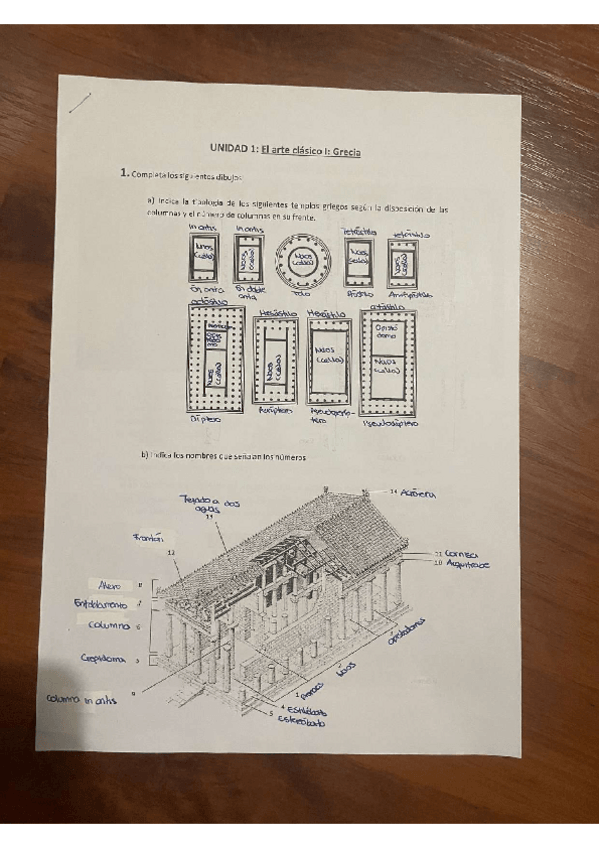 UNIDAD 1: El arte clásico I: Grecia
1. Completa los siguientes dibujos
a) Indica la tipología de los siguientes templos griegos según la disposición de las
columnas y el número de columnas en su frente.
In antis In antis Tetrástilo tetrástilo
Naos (cella) Naos (cella) Naos (cella) Naos (cella) Naos (cella)
En anta En doble anta Tolo Próstilo Anfipróstilo
octóstilo Hexástilo Hexástilo
Naos (cella) Naos (cella) Naos (cella) Opistó domo Naos (cella)
Díptero Períptero Pseudoperíp- tero Pseudodíptero
b) Indica los nombres que señalan los números
14 Acrótera
Tejado a dos aguas
13
Frontón
12
11 Cornisa
10 Arquitrabe
8
Entablamento 7
Columna 6
Crepidoma 3
columna in antis 9
1 pronaos naos opistodomos
4 Estilóbato
5 Estereóbato